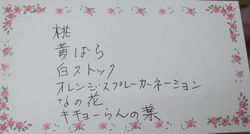 桃
黄ばら
白ストック
オレンジスプレーカーネーション
なの花
キキョーらんの葉